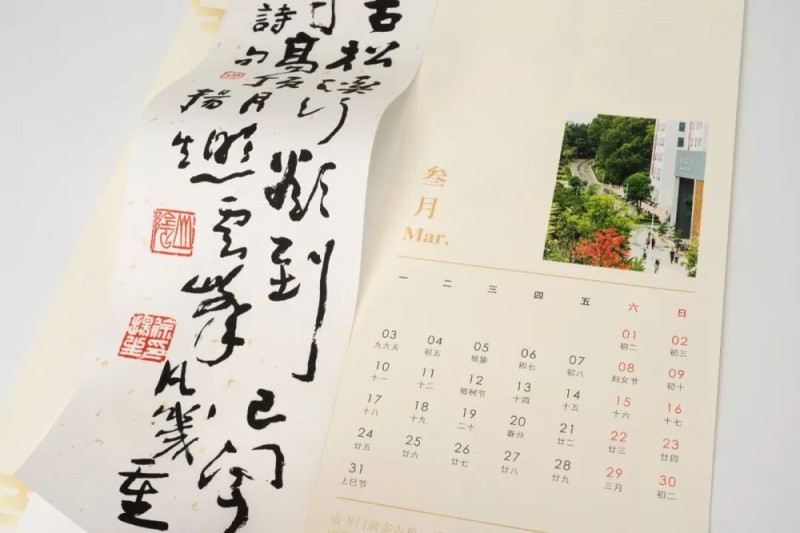 古松溪行欲到已闻
高顶月照云峰凡几重
詩句
叁月
Mar.
一 二 三 四 五 六 日
01 02
初二 初三
03 04 05 06 07 08 09
九九天 初五 惊蛰 初七 初八 妇女节 初十
10 11 12 13 14 15 16
十一 十二 植树节 十四 十五 十六 十七
17 18 19 20 21 22 23
十八 十九 二十 春分 廿二 廿三 廿四
24 25 26 27 28 29 30
廿五 廿六 廿七 廿八 廿九 三月 初二
31
上巳节
山寺门前多古松